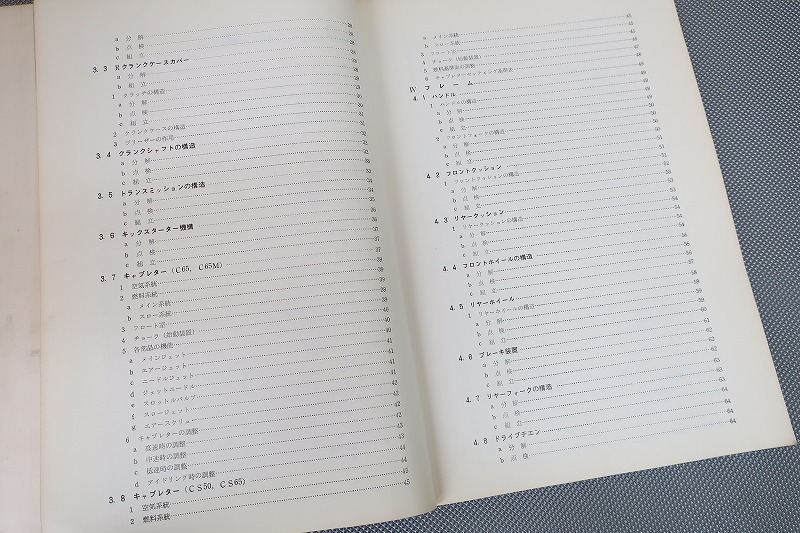 a 分 解 28
b 点 検 28
c 組 立 28
3. 3 Rクランクケースカバー 28
a 分 解 28
b 組 立 29
1 クラッチの構造 29
a 分 解 29
b 点 検 30
c 組 立 31
2 クランクケースの構造 31
3 ブリーザーの作用 32
3. 4 クランクシャフトの構造 32
a 分 解 32
b 点 検 33
c 組 立 33
3. 5 トランスミッションの構造 34
a 分 解 34
b 点 検 35
c 組 立 35
3. 6 キックスターター機構 36
a 分 解 36
b 点 検 37
c 組 立 37
3. 7 キャブレター（C65，C65M） 38
1 空気系統 39
2 燃料系統 39
a メイン系統 39
b スロー系統 39
3 フロート室 40
4 チョーク（始動装置） 40
5 各部品の機能 40
a メインジェット 41
b エアージェット 41
c ニードルジェット 41
d ジェットニードル 42
e スロットルバルブ 42
f スロージェット 42
g エアースクリュー 42
6 キャブレターの調整 43
a 高速時の調整 43
b 中速時の調整 44
c 低速時の調整 44
d アイドリング時の調整 45
3. 8 キャブレター（CS50，CS65） 45
1 空気系統
2 燃料系統
a メイン系統 45
b スロー系統 45
3 フロート室 46
4 チョーク（始動装置） 46
5 燃料基準面の調整 46
6 キャブレターセッティング基準表 48
Ⅳ フ レ ー ム 48
4. 1 ハンドル 48
1 ハンドルの構造 49
a 分 解 49
b 点 検 49
c 組 立 50
2 フロントフォークの構造 50
a 分 解 50
b 点 検 51
c 組 立 51
4. 2 フロントクッション 51
1 フロントクッションの構造 52
a 分 解 52
b 点 検 53
c 組 立 53
4. 3 リヤークッション 54
1 リヤークッションの構造 54
a 分 解 54
b 点 検 55
c 組 立 56
4. 4 フロントホイールの構造 56
a 分 解 57
b 点 検 58
c 組 立 58
4. 5 リヤーホイール 59
1 リヤーホイールの構造 59
a 分 解 60
b 点 検 61
c 組 立 62
4. 6 ブレーキ装置 62
a 分 解 62
b 点 検 63
c 組 立 63
4. 7 リヤーフォークの構造 63
a 分 解 64
b 点 検 64
c 組 立 64
4. 8 ドライブチエン 64
a 分 解
b 点 検